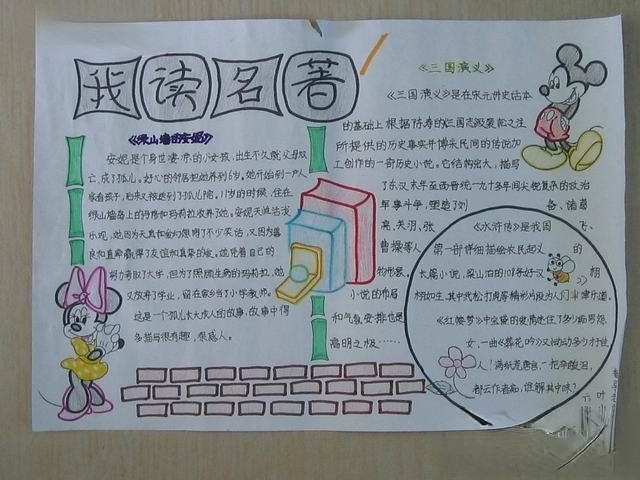 我读名著
《绿山墙的安妮》
安妮是个身世凄凉的小女孩，出生不久就父母双
亡，成了孤儿。好心的邻居把她养到 岁。她开始到一户人
家看孩子，后来又被送到了孤儿院。11岁的时候，住在
绿山墙岛上的丹修和玛莉拉收养了她。安妮天真活泼
乐观，她因为天真和爱幻想闹了不少笑话，又因为善
良和直率赢得了友谊和真挚的爱。她凭着自己的
努力考取了大学，但为了照顾生病的玛莉拉，她
又放弃了学业，留在家乡当了小学教师。
这是一个孤儿长大成人的故事，故事中得
多描写很有趣，很感人。
《三国演义》
《三国演义》是在宋元讲史话本
的基础上，根据陈寿的《三国志》及裴松之注
所提供的历史事实并博采民间的传说加
工创作的一部历史小说。它结构宏大，描写
了东汉末年至西晋统一九十多年间尖锐复杂的政治
军事斗争，塑造了刘备、诸葛
亮、关羽、张飞、
曹操等人的
物形象。
小说的布局
和气氛安排也是
高明之极……
《水浒传》是我国
第一部详细描绘农民起义
长篇小说，梁山泊的108条好汉 栩
栩如生，其中武松打虎等精彩片段为人们津津乐道。
《红楼梦》中宝黛的爱情迷住了多少痴男怨
女，一曲《葬花吟》又打动多少村性
人！满纸荒唐言，一把辛酸泪，
都云作者痴，谁解其中味？
叶